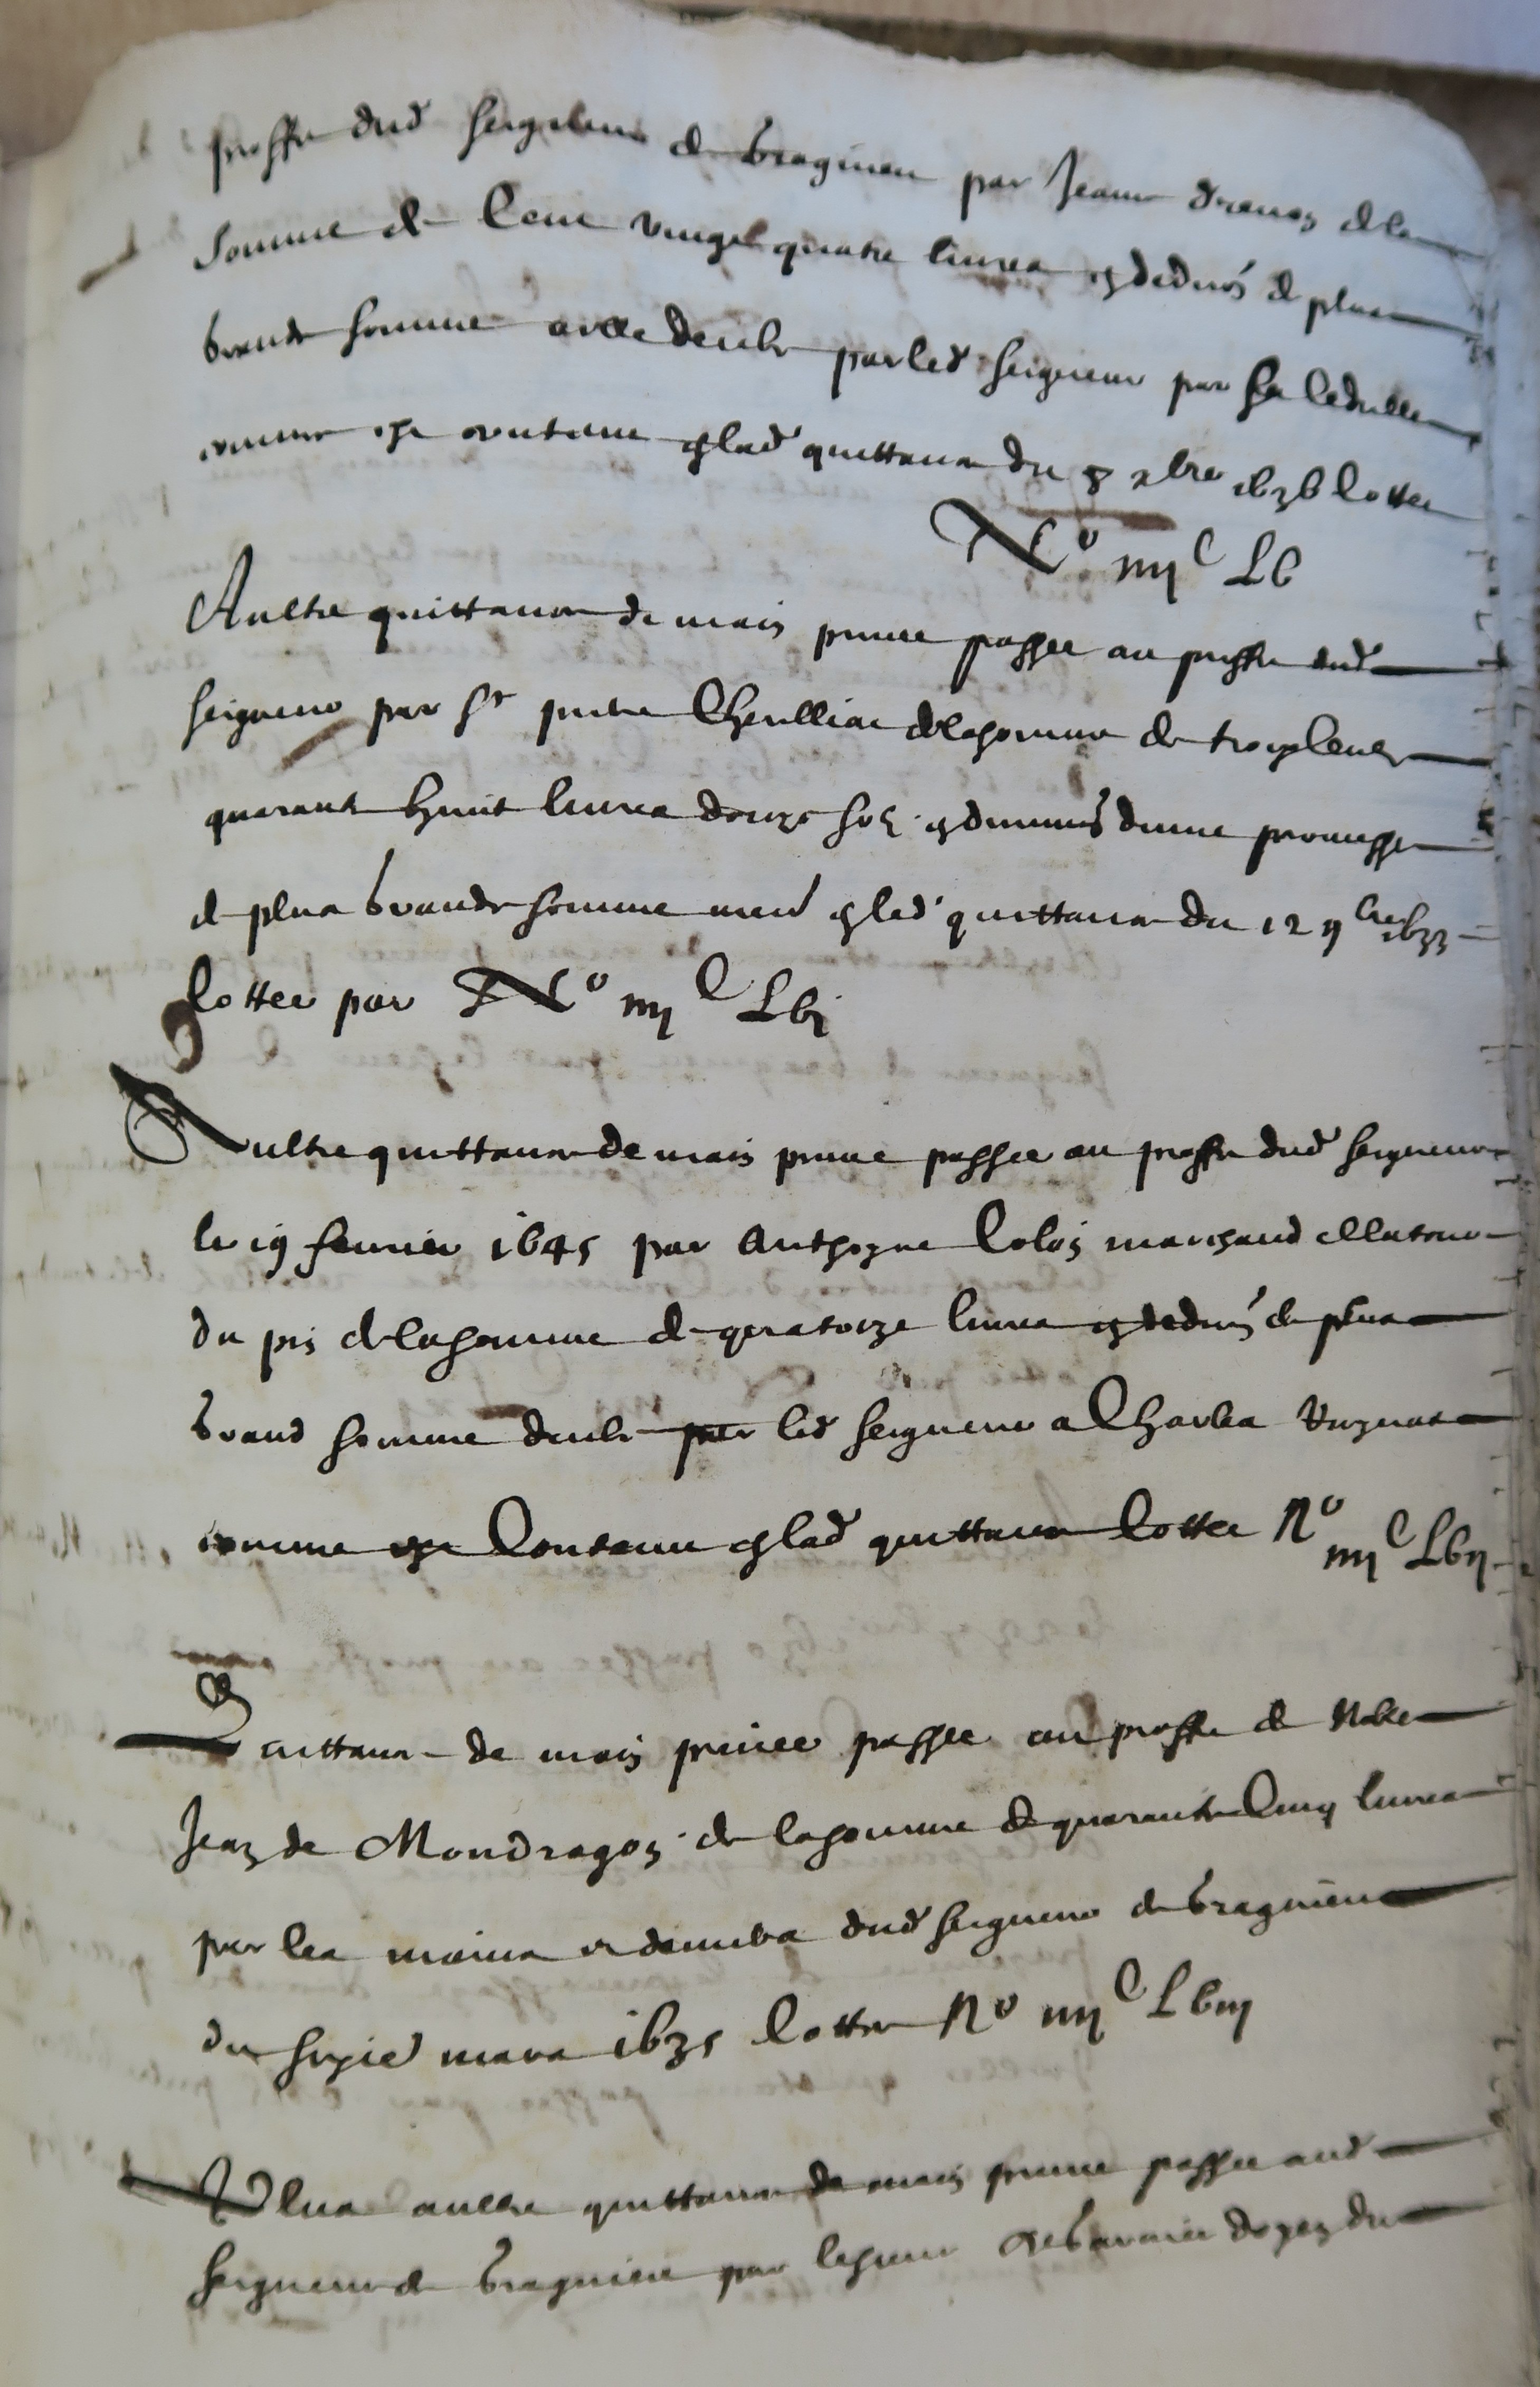 proffit dud seigneur de bragineu par Jeanne de la
somme de Cent vingt quatre livres en deduon de plus
grande somme a elle deube par led seigneur par sa Cedulle
comme est contenu en lad quittance du 8 xbre 1636 Cottee
No iiijC Lb
Aultre quittance de main privee passee au proffit dud
seigneur par Sr pierre de la somme de troys Centz
quarante huict livres douze solz en diminuon dune promesse
de plus grande somme men en lad quittance du 12 9bre 1633
Cottee par No iiijC Lbj
Aultre quittance de main privee passee au proffit dud seigneur
le 19 fevrier 1645 par Anthoyne Colon marchand
du pin de la somme de quatorze livres en deduon de plus
grand somme deube par led seigneur a Charles
comme est Contenu en lad quittance Cottee No iiijC Lbij
Quittance de main privee passee au proffit de Noble
Jean de Mondragon de la somme de quarante Cinq livres
par les mains et deniers dud seigneur de bragnieu
du mars 1635 Cottee No iiijC Lbiij
Plus aultre quittance de main privee passee aud
seigneur de bragnieu par le sieur doyen du